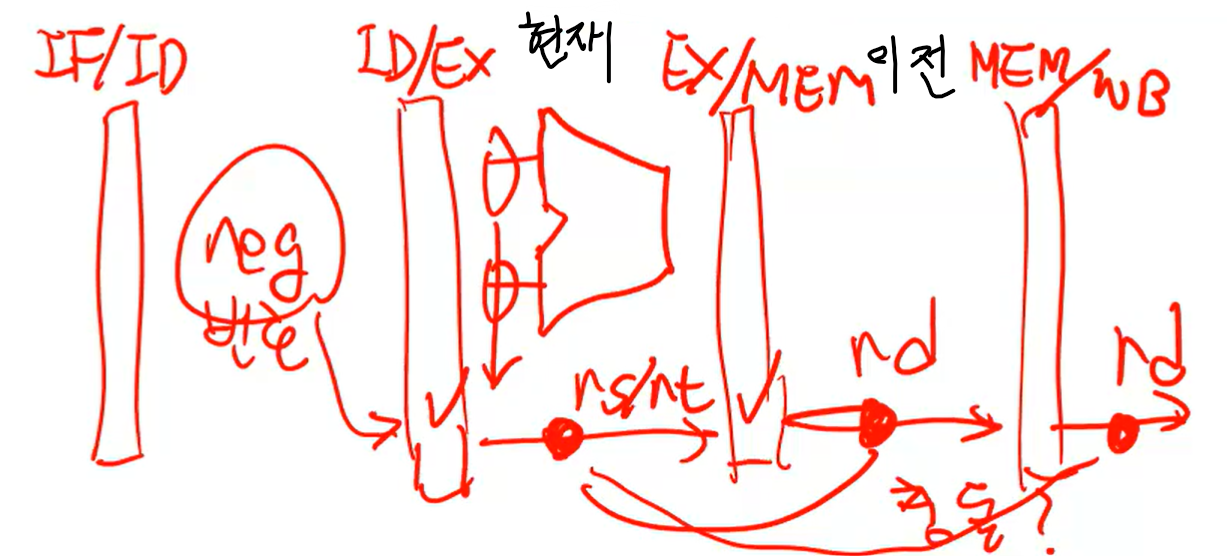 IF/ID ID/EX 현재 EX/MEM 이전 MEM/WB
reg
번호
rs/rt rd rd
충돌?